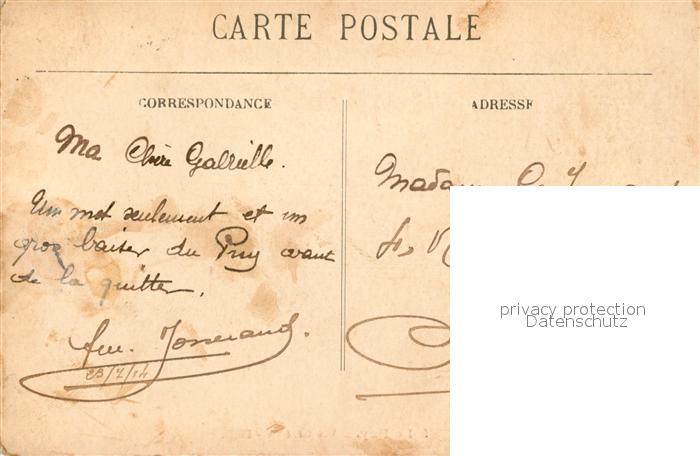 CARTE POSTALE
CORRESPONDANCE
ADRESSE
Ma Chère Gabrielle.
Un mot seulement et un
gros baiser du Puy avant
de la quitter.
Josserand.
23/7/14
Madame
privacy protection
Datenschutz